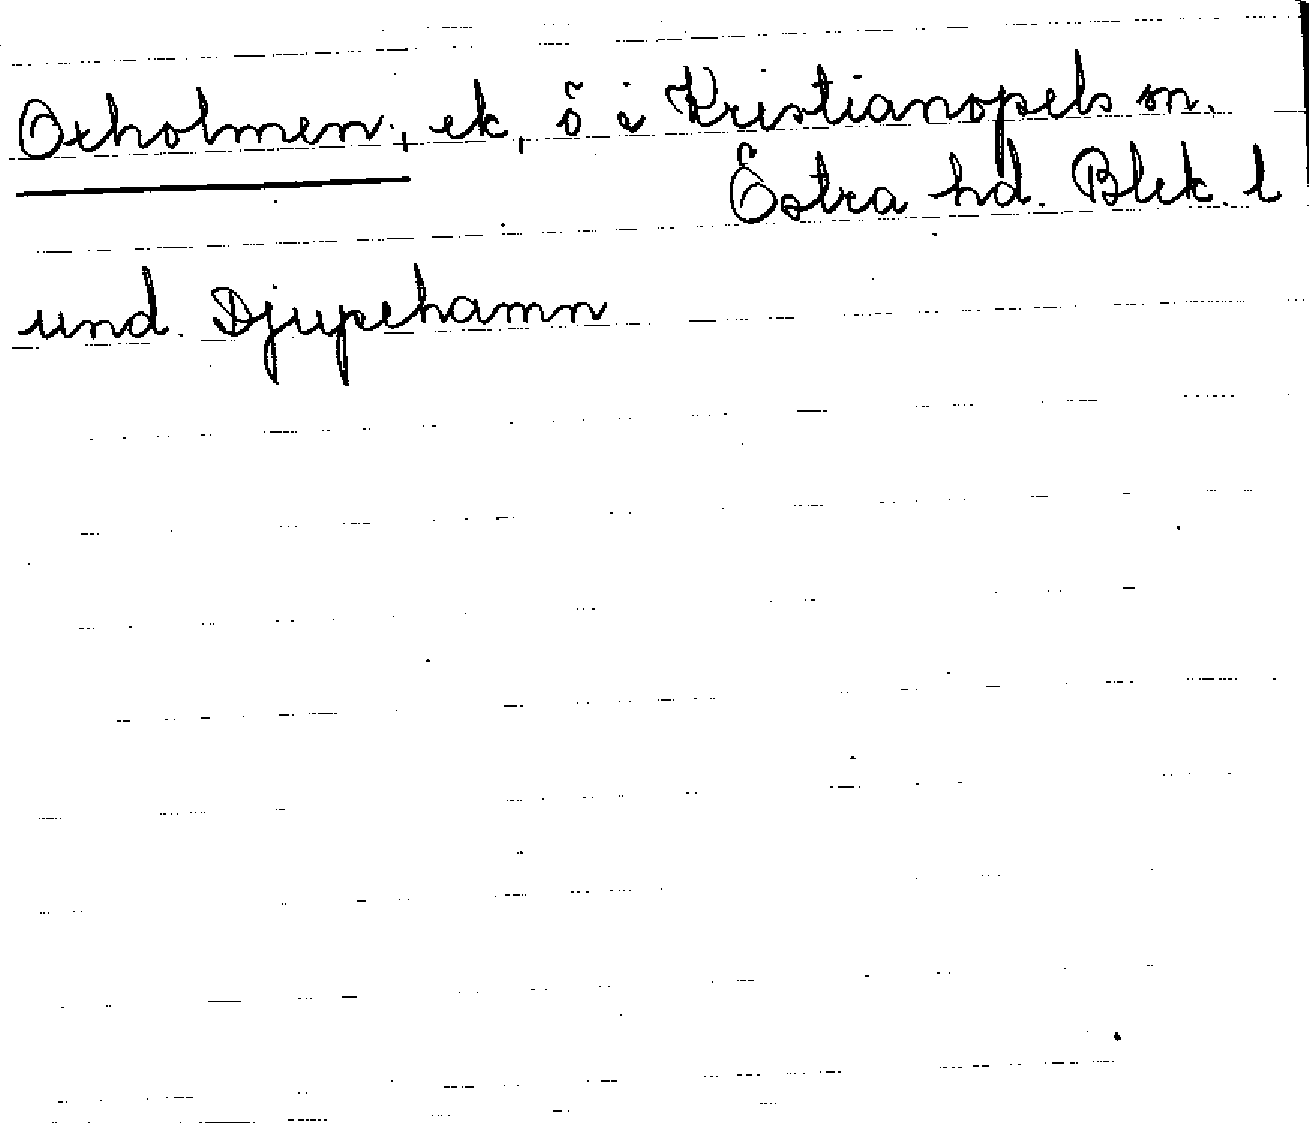 Oxholmen, ek, ö i Kristianopels sn.
Östra hd. Blek. l
und. Djupehamn